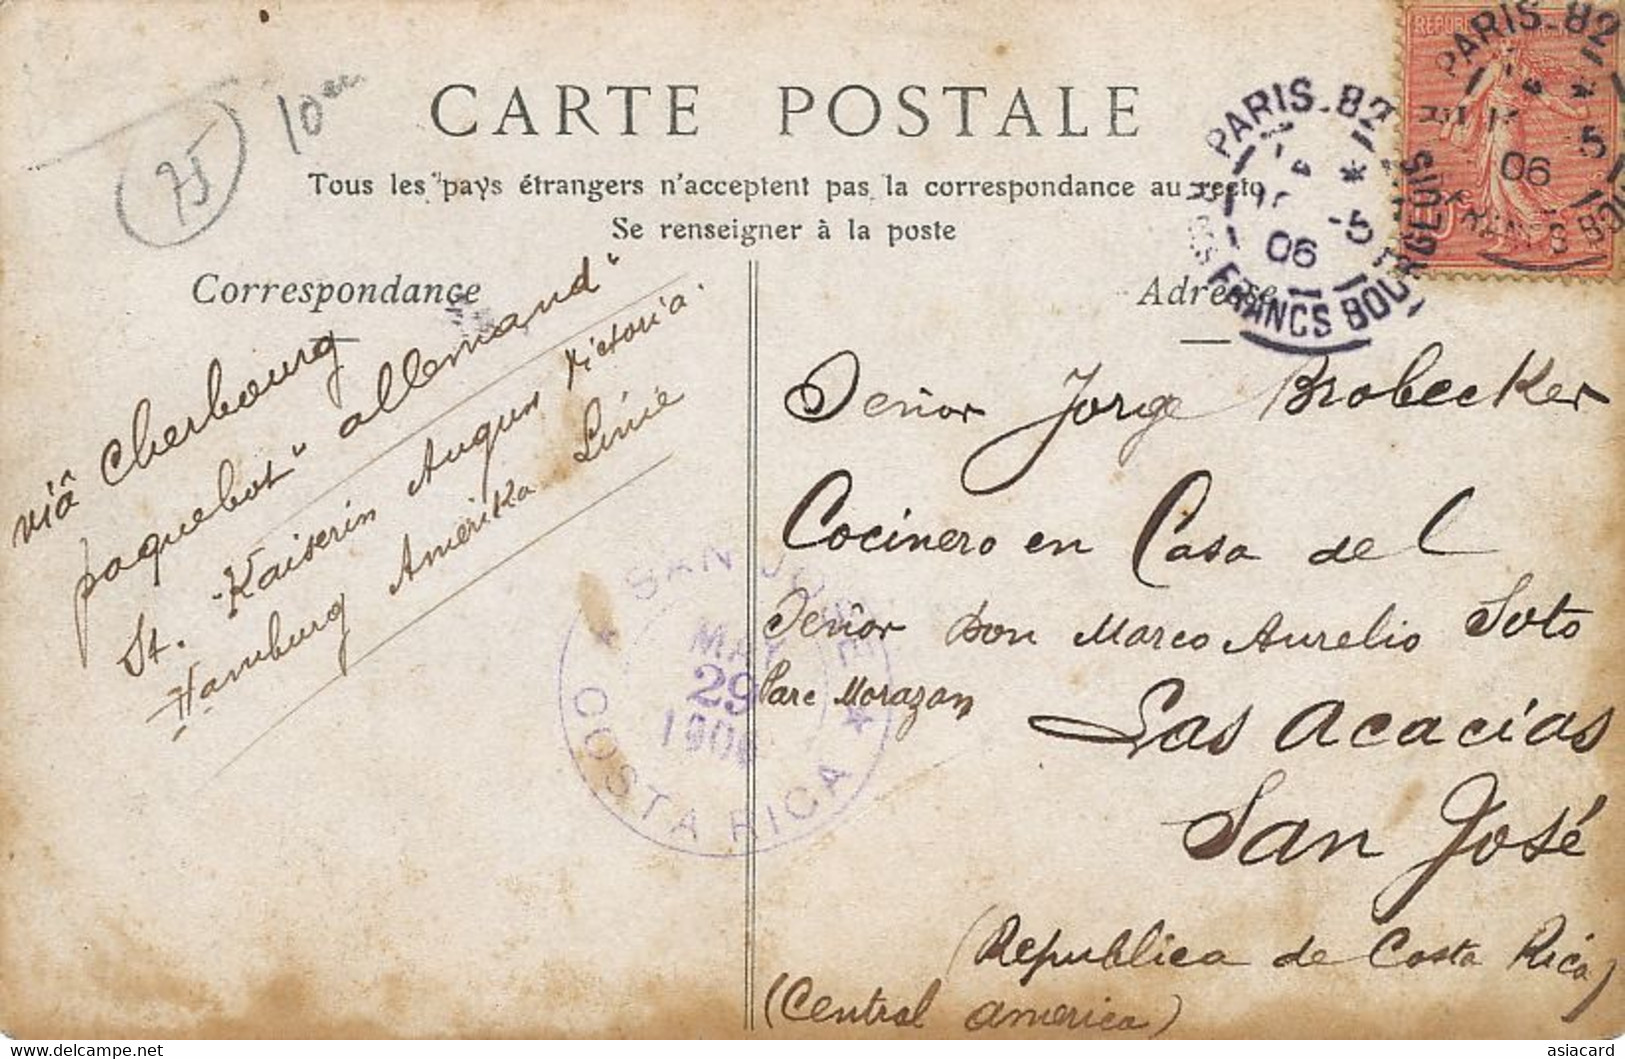 CARTE POSTALE
Tous les pays étrangers n'acceptent pas la correspondance au recto
Se renseigner à la poste
Correspondance
Adresse
75
10
viâ Cherbourg
paquebot "allemand"
St. Kaiserin Augus Victoria.
Hamburg Amerika Linie
Señor Jorge Brobecker
Cocinero en Casa del
Señor Don Marco Aurelio Soto
Parc Morazan
Las Acacias
San José
(Republica de Costa Rica)
(Central America)
SAN JOSE
MAY
29
1906
COSTA RICA
PARIS-82
-5
06
FRANCS BOURGEOIS
PARIS-82
5
06
FRANCS BO
asiacard
www.delcampe.net